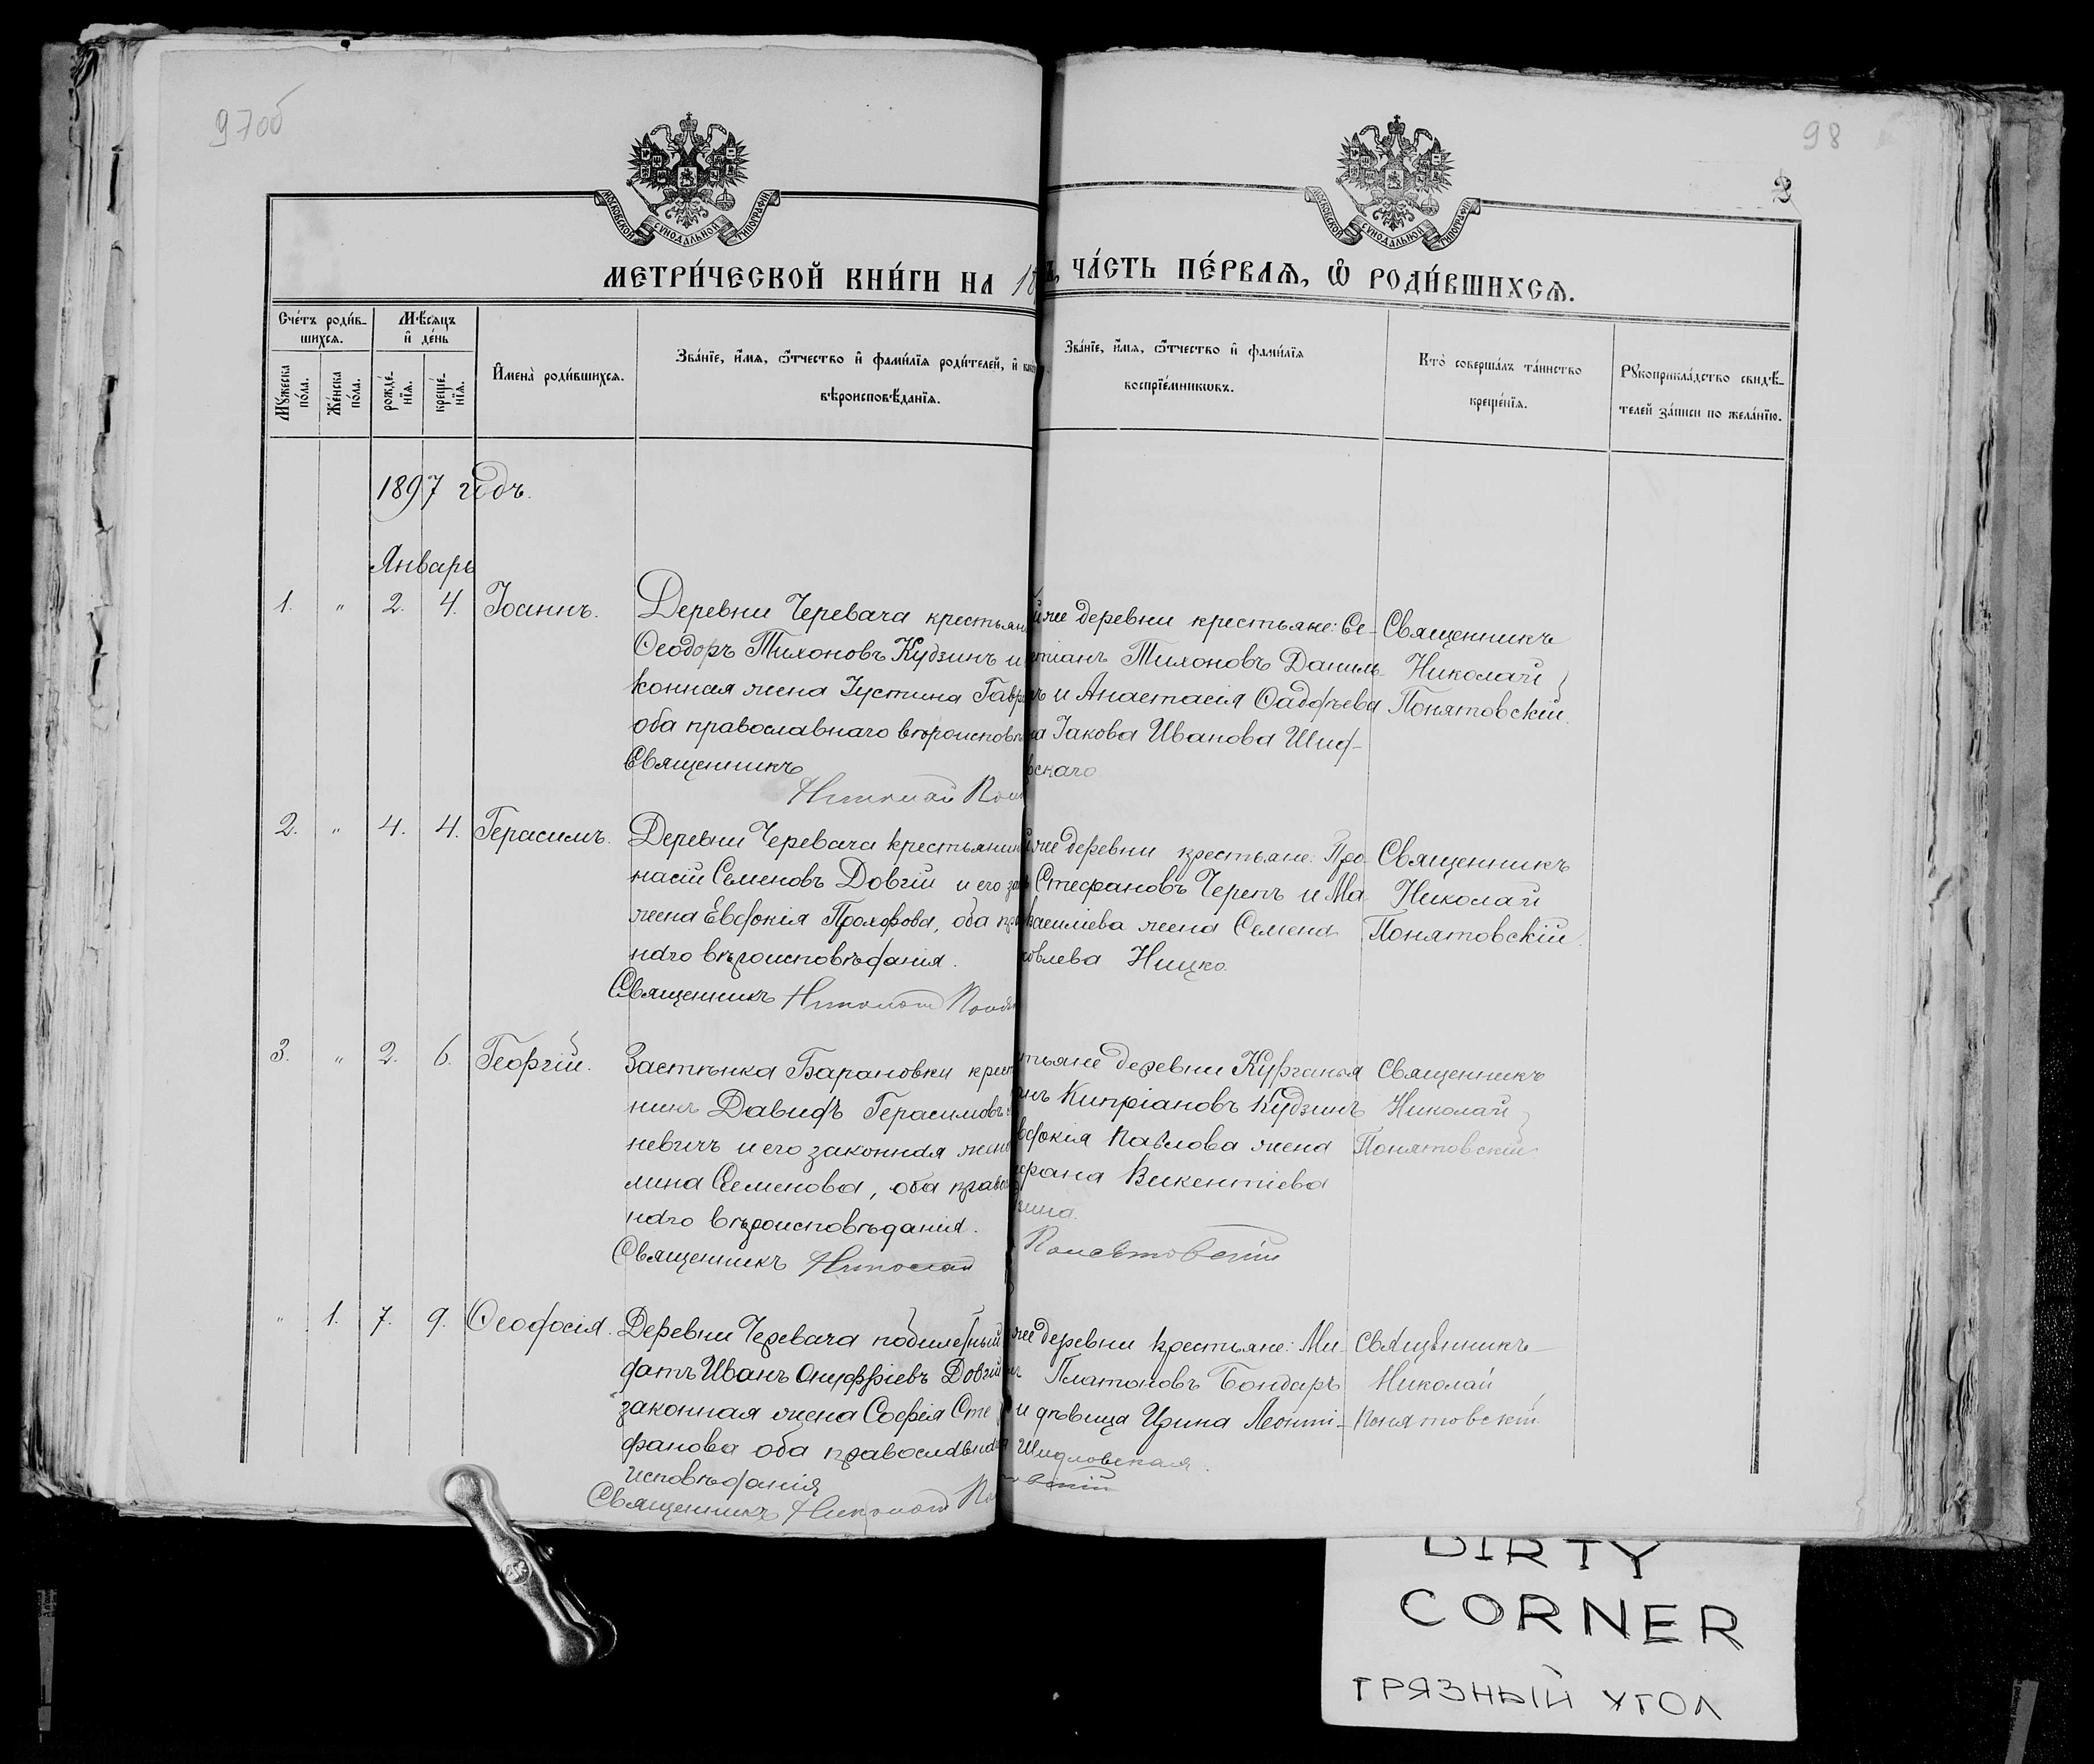 97об
98
2
МОСКОВСКОЙ СѴНОДАЛЬНОЙ ТИПОГРАФІИ
МОСКОВСКОЙ СѴНОДАЛЬНОЙ ТИПОГРАФІИ
МЕТРИ́ЧЕСКОЙ КНИ́ГИ НА 18
ЧА́СТЬ ПЕ́РВАѦ, Ѽ РОДИ́ВШИХСѦ.
Сче́тъ роди́в-
шихсѧ.
Мѣ́сѧцъ
и҆ де́нь
Мꙋ́жеска
по́ла.
Же́нска
по́ла.
рожде́-
нїѧ.
креще́-
нїѧ.
И҆мена̀ роди́вшихсѧ.
Зва́нїе, и҆́мѧ, ѻ҆́тчество и҆ фами́лїѧ роди́телей, и҆
вѣроисповѣ́данїѧ.
Зва́нїе, и҆́мѧ, ѻ҆́тчество и҆ фами́лїѧ
воспрїе́мникѡвъ.
Кто̀ соверша́лъ та́инство
креще́нїѧ.
Рꙋкоприкла́дство свидѣ́-
телей за́писи по жела́нїю.
1897 годъ.
Январь
1. " 2. 4. Іоаннъ.
Деревни Черевача крестьян
Ѳеодоръ Тихоновъ Кудзинъ и
конная жена Іустина Гавр
оба православнаго вѣроисповѣ
Священникъ
Николай Пон
йже деревни крестьяне: Се-
стіанъ Тихоновъ Даниль-
и Анастасія Ѳаддѣева
на Іакова Иванова Шид-
вскаго
Священникъ
Николай
Понятовскій.
2. " 4. 4. Герасимъ.
Деревни Черевача крестьянин
насій Семеновъ Довгій и его зак
жена Евдокія Прохорова, оба пра
наго вѣроисповѣданія.
Священникъ Николай Поня
йже деревни крестьяне: Про-
Стефановъ Черепъ и Ма-
Василіева жена Семена
ковлева Ницко.
Священникъ
Николай
Понятовскій.
3. " 2. 6. Георгій.
Застѣнка Барановки крест
нинъ Давидъ Герасимовъ
невичъ и его законная жена
мина Семенова, оба право
наго вѣроисповѣданія.
Священникъ Николай
тьяне деревни Курганья
Кипріановъ Кудзинъ
вдокія Павлова жена
фана Викентіева
зина.
Понятовскій
Священникъ
Николай
Понятовскій
" 1. 7. 9. Ѳеодосія.
Деревни Черевача
датъ Иванъ Онуфріевъ Довгій
законная жена Софія Сте-
фанова оба православна
исповѣданія
Священникъ Николай По
же деревни крестьяне: Ми-
Платоновъ Бондарь
и дѣвица Ирина Леонті-
Шидловская.
товскій
Священникъ
Николай
Понятовскій
DIRTY
CORNER
ГРЯЗНЫЙ УГОЛ